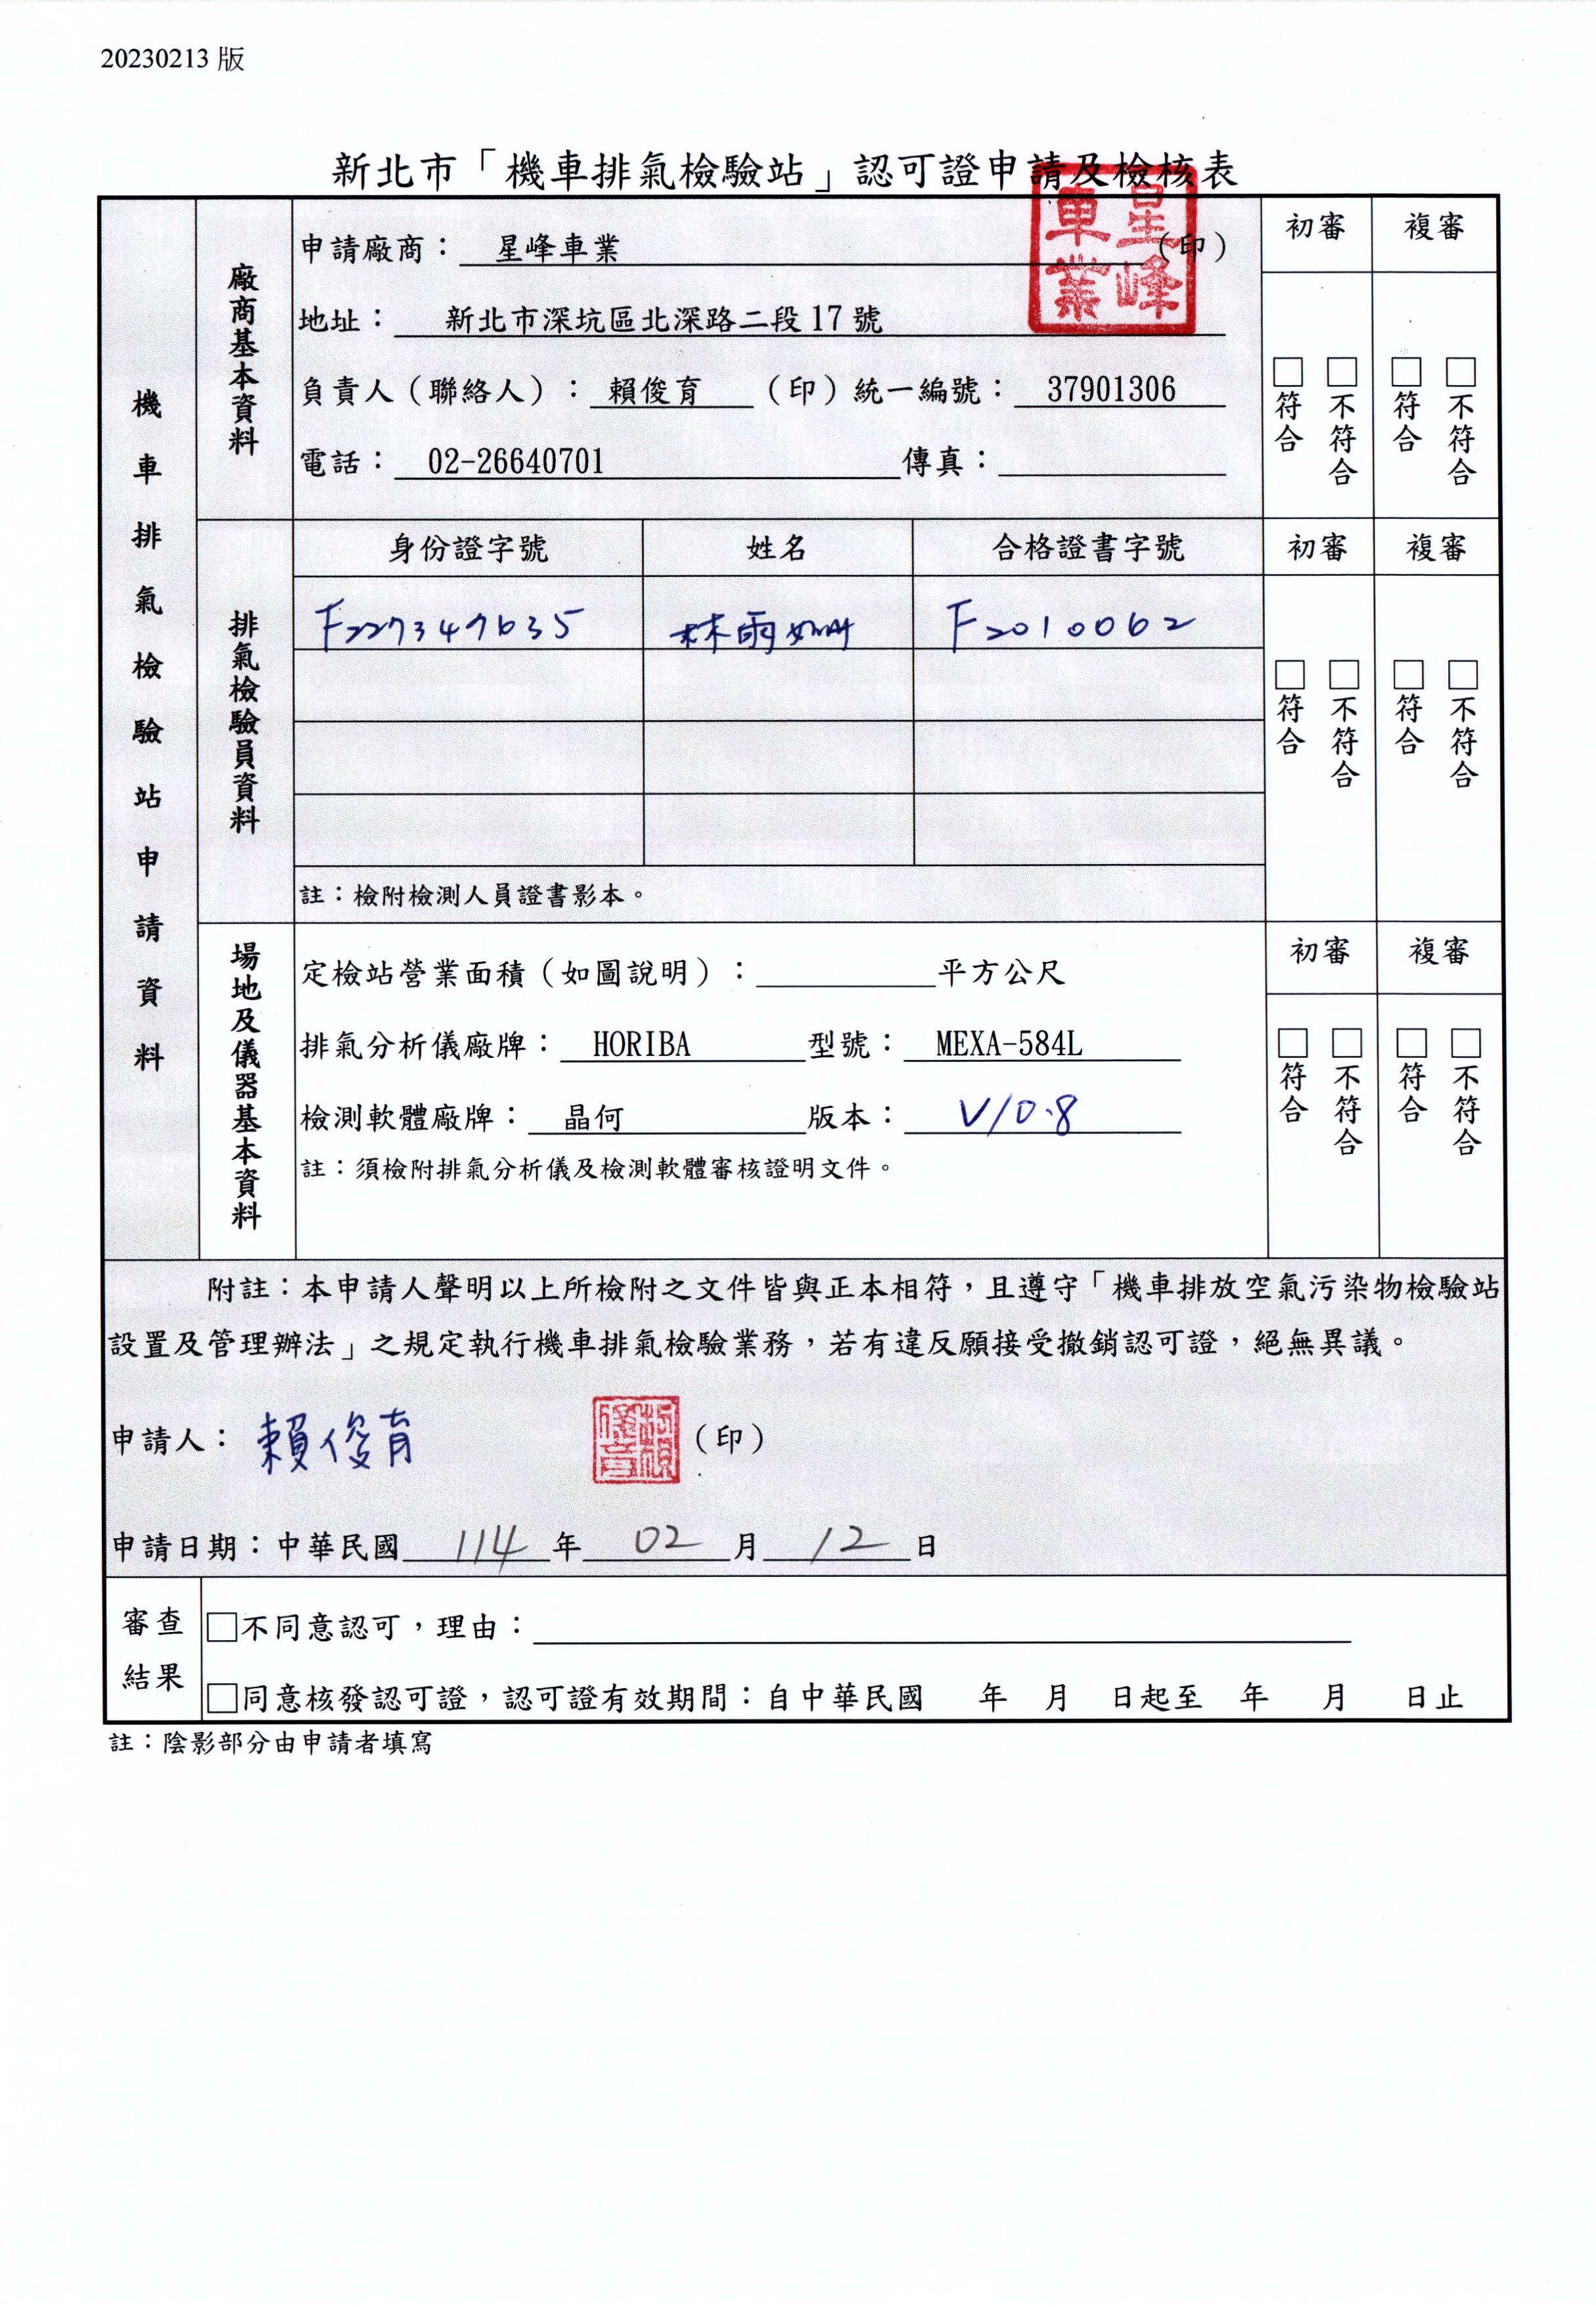 20230213 版
新北市「機車排氣檢驗站」認可證申請及檢核表
機車排氣檢驗站申請資料
廠商基本資料
申請廠商： 星峰車業 （印）
星峰車業
地址： 新北市深坑區北深路二段 17 號
負責人（聯絡人）： 賴俊育 （印）統一編號： 37901306
電話： 02-26640701 傳真：
初審 複審
□符合 □不符合 □符合 □不符合
排氣檢驗員資料
身份證字號 姓名 合格證書字號
F227347635 林雨 F2010062
註：檢附檢測人員證書影本。
初審 複審
□符合 □不符合 □符合 □不符合
場地及儀器基本資料
定檢站營業面積（如圖說明）： 平方公尺
排氣分析儀廠牌： HORIBA 型號： MEXA-584L
檢測軟體廠牌： 晶何 版本： V10.8
註：須檢附排氣分析儀及檢測軟體審核證明文件。
初審 複審
□符合 □不符合 □符合 □不符合
附註：本申請人聲明以上所檢附之文件皆與正本相符，且遵守「機車排放空氣污染物檢驗站
設置及管理辦法」之規定執行機車排氣檢驗業務，若有違反願接受撤銷認可證，絕無異議。
申請人： 賴俊育 （印）
申請日期：中華民國 114 年 02 月 12 日
審查結果
□不同意認可，理由：
□同意核發認可證，認可證有效期間：自中華民國 年 月 日起至 年 月 日止
註：陰影部分由申請者填寫